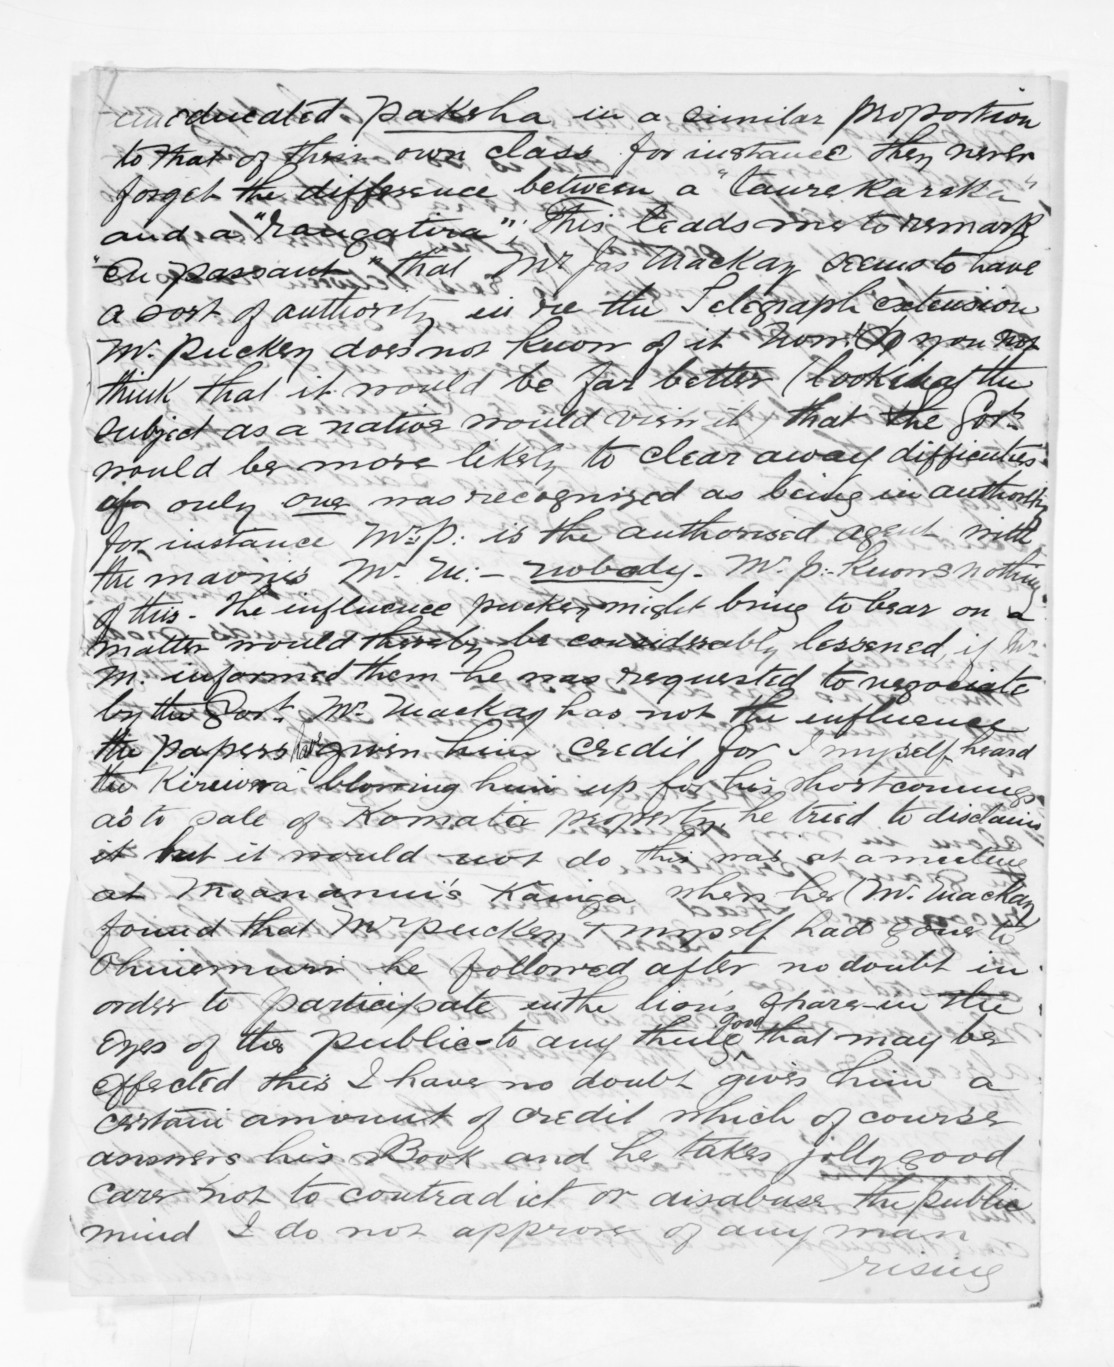 uneducated pakeha in a similar proportion
to that of their own class for instance they never
forget the difference between a "taurekareka"
and a "rangatira". This leads me to remark
"en passant" that Mr Jas Mackay seems to have
a sort of authority in re the Telegraph extension
Mr. Puckey does not know of it Now do you not
think that it would be far better (looking at the
subject as a native would view it) that the Govt.
would be more likely to clear away difficulties
if only one was recognized as being in authority
for instance Mr. P. is the authorised agent with
the maories Mr. M: - nobody. Mr. P: knows nothing
of this. The influence Puckey might bring to bear on a
matter would thereby be considerably lessened if Mr.
M. informed them he was requested to negociate
by the Govt. Mr. Mackay has not the influence
the papers have given him credit for I myself heard
the Kirewera blowing him up for his shortcomings
as to sale of Komata property, he tried to disclaim
it but it would not do this was at a meeting
at Moananui's Kainga when he (Mr. Mackay)
found that Mr Puckey & myself had gone to
Ohinemuri he followed after no doubt in
order to participate in the lion's share - in the
eyes of the public - to any thing good that may be
effected this I have no doubt gives him a
certain amount of credit which of course
answers his Book and he takes jolly good
care not to contradict or disabuse the public
mind I do not approve of any man
rising